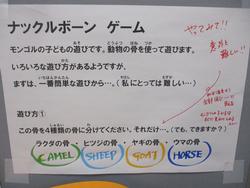 ナックルボーン ゲーム
やってみて!!
意外と難しい!!
モンゴルの子どもの遊びです。動物の骨を使って遊びます。
いろいろな遊び方があるようですが、
まずは、一番簡単な遊びから…。(私にとっては難しい…)
遊び方①
この骨を4種類の骨に分けてください。それだけ…。(でも、できますか?)
ラクダの骨・ヒツジの骨・ヤギの骨・ウマの骨
CAMEL SHEEP GOAT HORSE